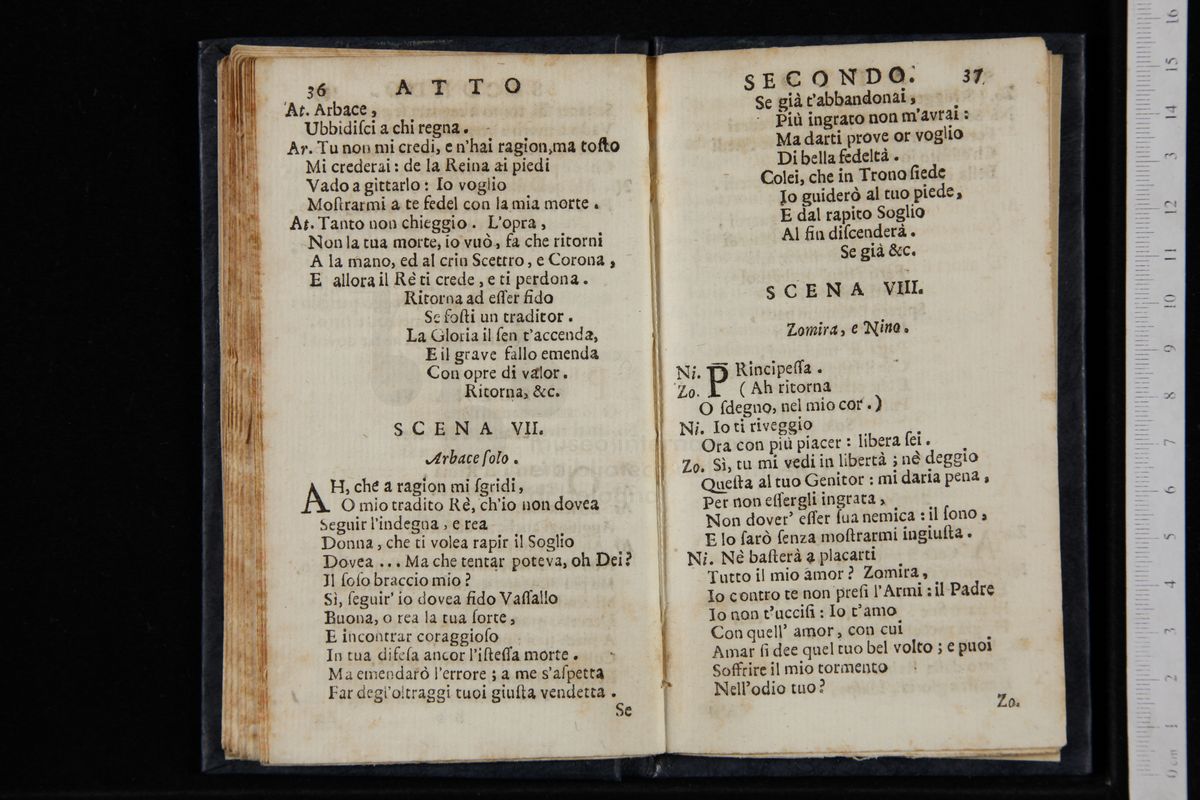 36 ATTO
At. Arbace,
Ubbidiſci a chi regna.
Ar. Tu non mi credi, e n'hai ragion,ma toſto
Mi crederai: de la Reina ai piedi
Vado a gittarlo: Io voglio
Moſtrarmi a te fedel con la mia morte.
At. Tanto non chieggio. L'opra,
Non la tua morte, io vuò, fa che ritorni
A la mano, ed al crin Scettro, e Corona,
E allora il Rè ti crede, e ti perdona.
Ritorna ad eſſer fido
Se foſti un traditor.
La Gloria il ſen t'accenda,
E il grave fallo emenda
Con opre di valor.
Ritorna, &c.
SCENA VII.
Arbace ſolo.
AH, che a ragion mi ſgridi,
O mio tradito Rè, ch'io non dovea
Seguir l'indegna, e rea
Donna, che ti volea rapir il Soglio
Dovea ... Ma che tentar poteva, oh Dei?
Il ſoſo braccio mio?
Sì, ſeguir' io dovea fido Vaſſallo
Buona, o rea la tua ſorte,
E incontrar coraggioſo
In tua difeſa ancor l'iſteſſa morte.
Ma emendarò l'errore; a me s'aſpetta
Far degl'oltraggi tuoi giuſta vendetta.
Se
SECONDO. 37
Se già t'abbandonai,
Più ingrato non m'avrai:
Ma darti prove or voglio
Di bella fedeltà.
Colei, che in Trono ſiede
Io guiderò al tuo piede,
E dal rapito Soglio
Al fin diſcenderà.
Se già &c.
SCENA VIII.
Zomira, e Nino.
Ni. PRincipeſſa.
Zo. (Ah ritorna
O ſdegno, nel mio cor.)
Ni. Io ti riveggio
Ora con più piacer: libera ſei.
Zo. Sì, tu mi vedi in libertà; nè deggio
Queſta al tuo Genitor: mi daria pena,
Per non eſſergli ingrata,
Non dover' eſſer ſua nemica: il ſono,
E lo ſarò ſenza moſtrarmi ingiuſta.
Ni. Nè baſterà a placarti
Tutto il mio amor? Zomira,
Io contro te non preſi l'Armi: il Padre
Io non t'ucciſi: Io t'amo
Con quell' amor, con cui
Amar ſi dee quel tuo bel volto; e puoi
Soffrire il mio tormento
Nell'odio tuo?
Zo.
0 cm 1 2 3 4 5 6 7 8 9 10 11 12 13 14 15 16